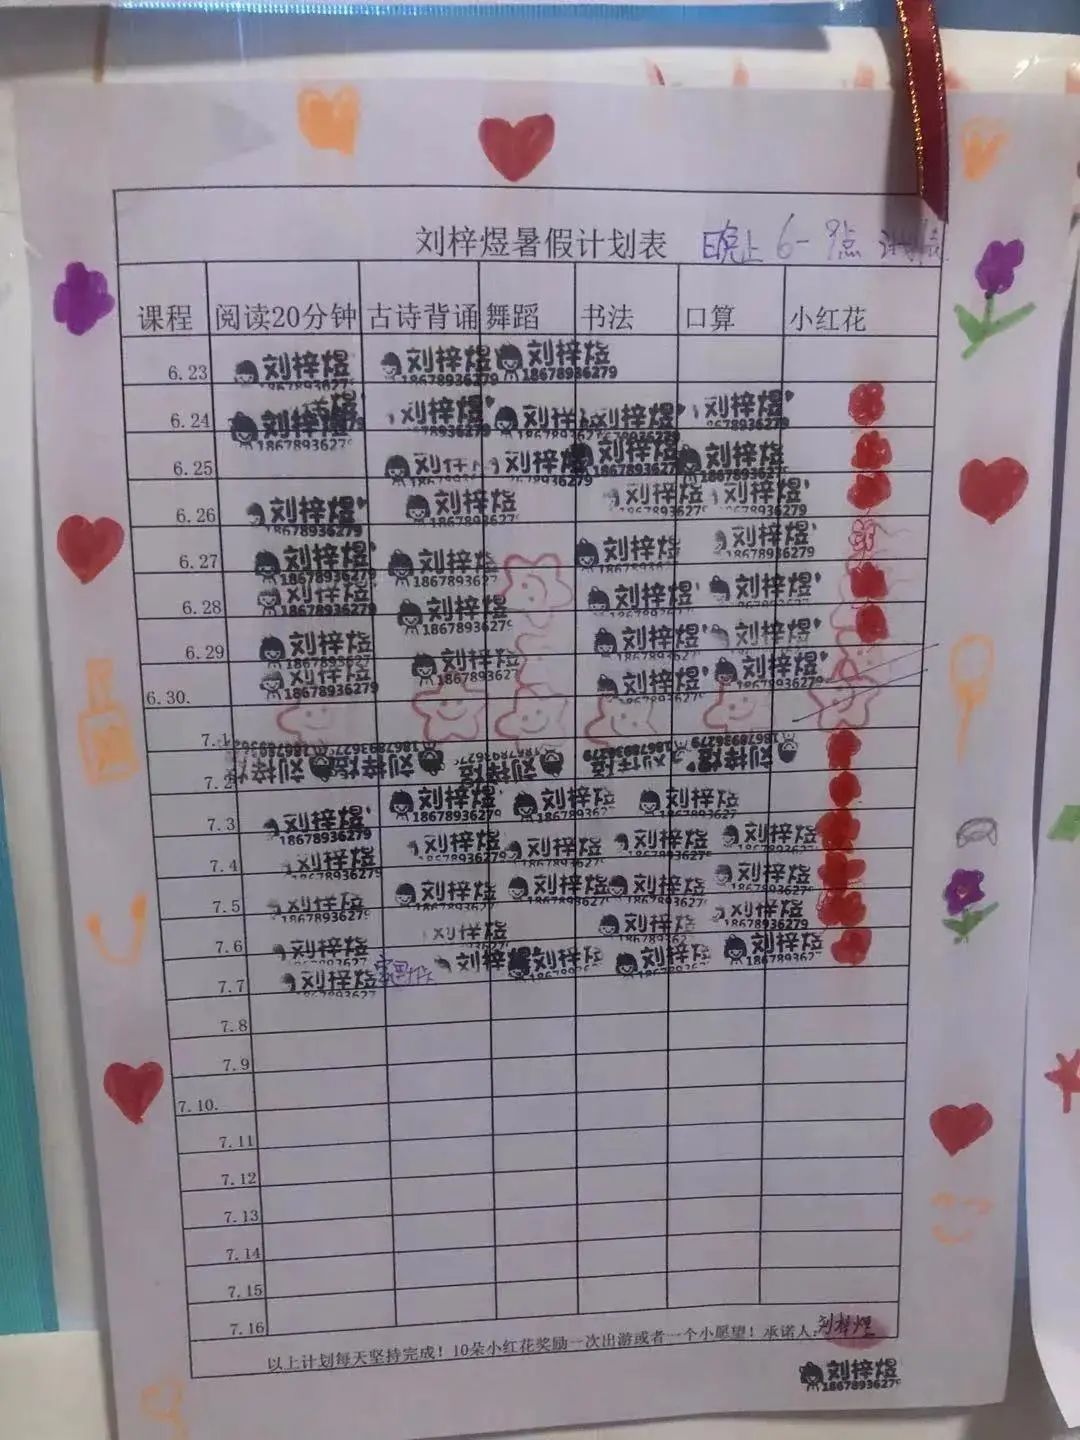 刘梓煜暑假计划表 晚上6-9点 计划表
课程 阅读20分钟 古诗背诵 舞蹈 书法 口算 小红花
6.23 刘梓煜 刘梓煜 18678936279 刘梓煜 18678936279
6.24 刘梓煜 刘梓煜 18678936279 刘梓煜 刘梓煜 18678936279
6.25 刘梓煜 刘梓煜 刘梓煜
6.26 刘梓煜 18678936279 刘梓煜 刘梓煜 刘梓煜
6.27 刘梓煜 18678936279 刘梓煜 刘梓煜 刘梓煜
6.28 刘梓煜 18678936279 刘梓煜 18678936279 刘梓煜 刘梓煜
6.29 刘梓煜 刘梓煜 刘梓煜 刘梓煜
6.30. 刘梓煜 18678936279 刘梓煜 刘梓煜
7.1
7.2 刘梓煜 刘梓煜 刘梓煜 刘梓煜 刘梓煜 18678936279
7.3 刘梓煜 18678936279 刘梓煜 刘梓煜 刘梓煜
7.4 刘梓煜 刘梓煜 刘梓煜 刘梓煜 刘梓煜
7.5 刘梓煜 刘梓煜 刘梓煜 刘梓煜 刘梓煜
7.6 刘梓煜 刘梓煜 刘梓煜 刘梓煜
7.7 刘梓煜 刘梓煜 刘梓煜 刘梓煜 刘梓煜
7.8
7.9
7.10.
7.11
7.12
7.13
7.14
7.15
7.16
以上计划每天坚持完成！10朵小红花奖励一次出游或者一个小愿望！承诺人：刘梓煜
刘梓煜
18678936279